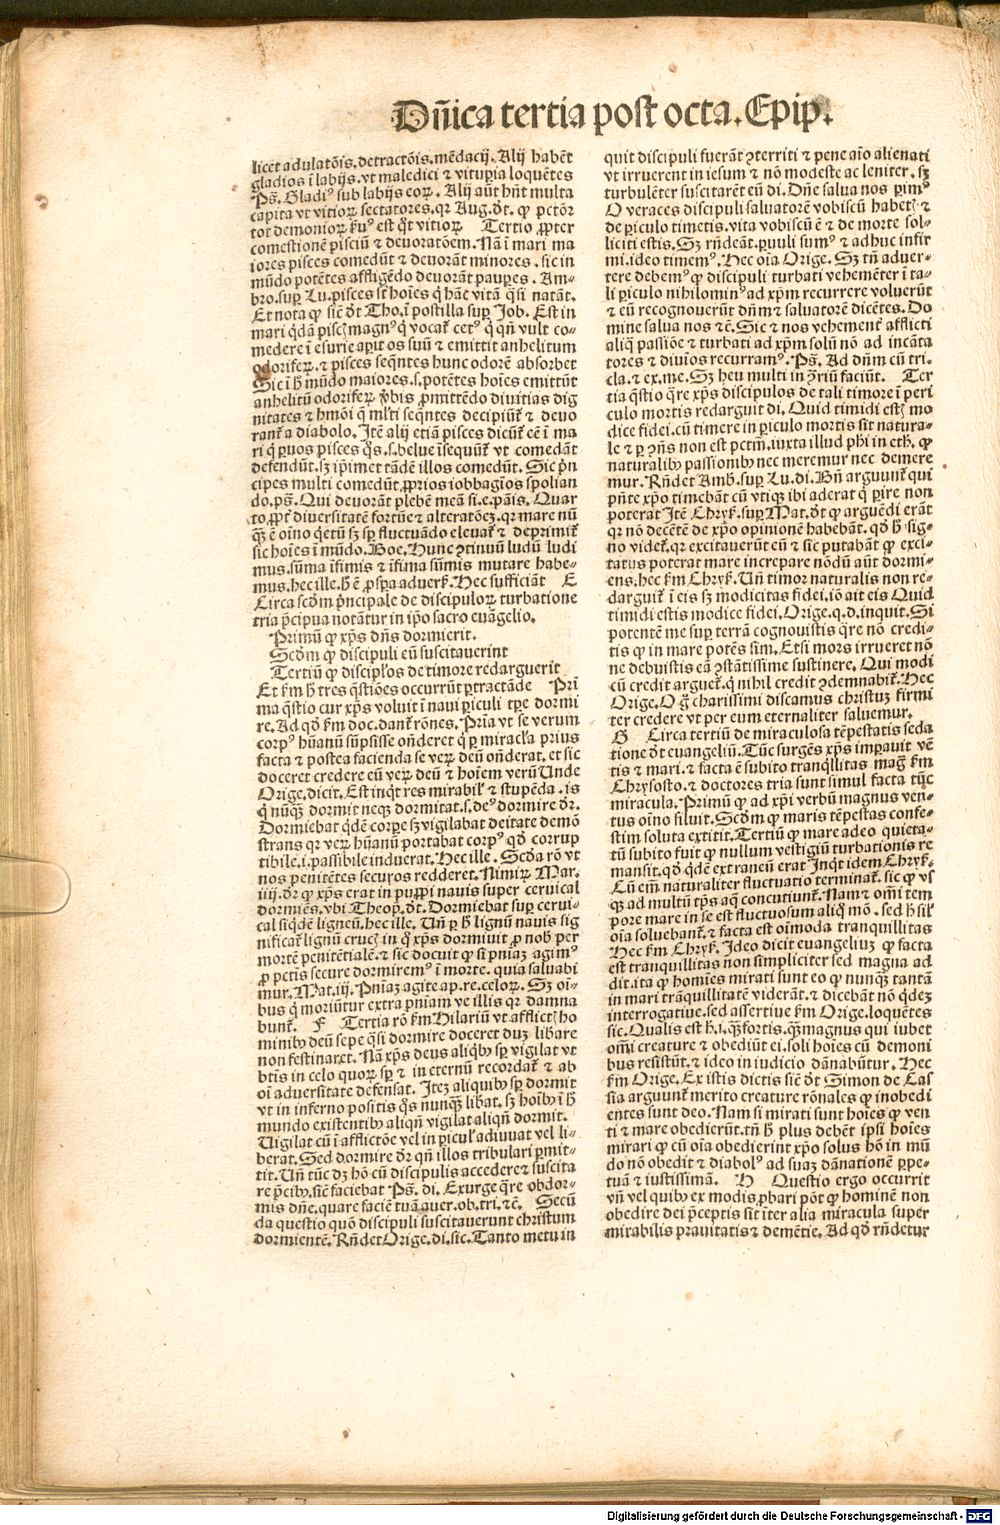 Dn̄ica tertia post octa. Epip.
licet adulatōis. detractōis. mēdacij. Alij habēt
gladios ī labijs. vt maledici ⁊ vituꝑia loquētes
Ps̄. Gladiꝰ sub labijs eoꝝ. Alij aūt hn̄t multa
capita vt vitioꝝ sectatores. qꝛ Aug. dt̄. ꝙ pctōr
tot demonioꝝ ẜuꝰ est qͦt vitioꝝ Tertio ꝓpter
comestionē pisciū ⁊ deuoratōem. Nā ī mari ma
iores pisces comedūt ⁊ deuorāt minores. sic in
mūdo potētes affligēdo deuorāt pauꝑes. Am-
bro. suꝑ Lu. pisces st̄ hoīes q̇ hāc vitā q̄si natāt.
Et nota ꝙ sic̄ dt̄ Tho. ī postilla suꝑ Job. Est in
mari qdā piscꝭ magnꝰ q̇ vocat̄ cetꝰ q̇ qn̄ vult co-
medere ī esurie aꝑit os suū ⁊ emittit anhelitum
odoriferū. ⁊ pisces seqn̄tes hunc odorē absorbet
Sic ī h̄ mūdo maiores. s. potētes hoīes emittūt
anhelitū odorifeꝝ ꝟbis ꝓmittēdo diuitias dig
nitates ⁊ hmōi q̇ ml̄ti seqn̄tes decipiūt̄ ⁊ deuo
rant̄ a diabolo. Itē alij etiā pisces dicūt̄ cē ī ma
ri q̇ ꝑuos pisces q̄s. s. belue īsequūt̄ vt comedāt
defendūt. sꝫ ip̄imet tādē illos comedūt. Sic pn̄
cipes multi comedūt ꝓprios iobbagios spolian
do. ps̄. Qui deuorāt plebē meā si. e. pāis. Quar
to ꝓpt̄ diuersitatē fortūe ⁊ alteratōeꝫ. qꝛ mare nū
qꝫ̄ ē oīno q̇etū sꝫ sꝑ fluctuādo eleuat̄ ⁊ deprimit̄
sic hoīes ī mūdo. Boe. Hunc ꝯtinuū ludū ludi
mus. sūma īfimis ⁊ īfima sūmis mutare habe-
mus. hec ille. h̄ ē ꝓspa aduerẜ. Hec sufficiāt E
Circa scd̄m pn̄cipale de discipuloꝝ turbatione
tria p̄cipua notātur in ip̄o sacro euāgelio.
Primū ꝙ xp̄s dn̄s dormierit.
Scd̄m ꝙ discipuli eū suscitauerint
Tertiū ꝙ discipl̄os de timore redarguerit
Et ẜm h̄ tres q̄stiōes occurrūt ꝑtractāde Pri
ma q̄stio cur xp̄s voluit ī naui ꝑiculi tꝑe dormi
re. Ad qd̄ ẜm doc. dant̄ rōnes. Pria vt se verum
corpꝰ hūanū sūpsisse on̄deret q̇ ꝑ miracl̄a prius
facta ⁊ postea facienda se veꝝ deū on̄derat. et sic
doceret credere eū veꝝ deū ⁊ hoīem verū Unde
Orige. dicit. Est inqͭ res mirabil̄ ⁊ stupēda. is
q̇ nūqꝫ̄ dormit neqꝫ dormitat. s. deꝰ dormire dr̄.
Dormiebat qdē corꝑe sꝫ vigilabat deitate demō
strans qꝛ veꝝ hūanū portabat corpꝰ qd̄ corrup
tibile. i. passibile induerat. Hec ille. Scd̄a rō vt
nos penitētes securos redderet. Nimiꝝ Mar.
iiij. dr̄ ꝙ xp̄s erat in puppi nauis super ceruical
dormiēs. vbi Theop. dt̄. Dormiebat suꝑ cerui-
cal siqdē ligneū. hec ille. Un̄ ꝑ h̄ lignū nauis sig
nificat̄ lignū crucꝭ in q̊ xp̄s dormiuit ꝓ nob̄ per
mortē penitētialē. ⁊ sic docuit ꝙ si pn̄iaꝫ agimꝰ
ꝓ pctīs secure dormiremꝰ ī morte. quia saluabi
mur. Mat. iij. Pn̄iaꝫ agite ap. re. celoꝝ. Sꝫ oī-
bus q̇ moriūtur extra pn̄iam ve illis qꝛ damna
bunt̄. F Tertia rō ẜm Hilariū vt afflictꝭ ho
minibꝫ deū sepe q̄si dormire doceret duꝫ libare
non festinaret. Nā xp̄s deus aliqbꝫ sꝑ vigilat vt
bt̄is in celo quoꝝ sꝑ ⁊ in eternū recordat̄ ⁊ ab
oī aduersitate defensat. Iteꝫ aliquibꝫ sꝑ dormit
vt in inferno positis q̄s nunqꝫ̄ libat. sꝫ hoībꝫ ī h̄
mundo existentibꝫ aliqn̄ vigilat aliqn̄ dormit.
Uigilat cū ī afflictōe vel in ꝑicul̄ adiuuat vel li-
berat. Sed dormire dr̄ qn̄ illos tribulari ꝑmit-
tit. Un̄ tūc dꝫ hō cū discipulis accedere ⁊ suscita
re p̄cibꝫ. sic̄ faciebat Ps̄. di. Exurge q̄re obdor-
mis dn̄e. quare faciē tuā auer. ob. tri. ⁊c̄. Secū
da questio quō discipuli suscitauerunt christum
dormientē. Rn̄det Orige. di. sic. Tanto metu in
quit discipuli fuerāt ꝯterriti ⁊ pene aīo alienati
vt irruerent in iesum ⁊ nō modeste ac leniter. sꝫ
turbulēter suscitarēt eū di. Dn̄e salua nos ꝑimꝰ
O veraces discipuli saluatorē vobiscū habetꝭ ⁊
de ꝑiculo timetis. vita vobiscū ē ⁊ de morte sol-
liciti estis. Sꝫ rn̄deāt. ꝑuuli sumꝰ ⁊ adhuc infir
mi. ideo timemꝰ. Hec oīa Orige. Sꝫ tn̄ aduer-
tere debemꝰ ꝙ discipuli turbati vehemēter ī ta-
li ꝑiculo nihilominꝰ ad xp̄m recurrere voluerūt
⁊ eū recognouerūt dn̄m ⁊ saluatorē dicētes. Do
mine salua nos ⁊c̄. Sic ⁊ nos vehement̄ afflicti
aliq̇ passiōe ⁊ turbati ad xp̄m solū nō ad incāta
tores ⁊ diuīos recurramꝰ. Ps̄. Ad dn̄m cū tri.
cla. ⁊ ex. me. Sꝫ heu multi in ꝯriū faciūt. Ter
tia q̄stio q̄re xp̄s discipulos de tali timore ī peri
culo mortis redarguit di. Quid timidi estꝭ mo
dice fidei. cū timere in ꝑiculo mortis sit natura-
le ⁊ ꝑ ꝯn̄s non est pctm̄. iuxta illud phi in eth. ꝙ
naturalibꝫ passionibꝫ nec meremur nec demere
mur. Rn̄det Amb. suꝑ Lu. di. Bn̄ arguunt̄ qui
pn̄te xp̄o timebāt cū vtiqꝫ ibi aderat q̇ ꝑire non
poterat Itē Chryẜ. suꝑ Mat. dt̄ ꝙ arguēdi erāt
qꝛ nō decētē de xp̄o opinionē habebāt. qd̄ h̄ sig-
no videt̄. qꝛ excitauerūt eū ⁊ sic putabāt ꝙ exci-
tatus poterat mare increpare nōdū aūt dormi-
ens. hec ẜm Chryẜ. Un̄ timor naturalis non re-
darguit̄ ī eis sꝫ modicitas fidei. iō ait eis Quid
timidi estis modice fidei. Orige. q. d. inquit. Si
potentē me suꝑ terrā cognouistis q̄re nō credi-
tis ꝙ in mare potēs sim. Etsi mors irrueret nō
ne debuistis eā ꝯstātissime sustinere. Qui modi
cū credit arguet̄. q̇ nihil credit ꝯdemnabit̄. Hec
Orige. O g̊ charissimi discamus christuꝫ firmi
ter credere vt per eum eternaliter saluemur.
G Circa tertiū de miraculosa tēpestatis seda
tione dt̄ euangeliū. Tūc surgēs xp̄s imꝑauit vē
tis ⁊ mari. ⁊ facta ē subito tranqͥllitas mag̊ ẜm
Chrysosto. ⁊ doctores tria sunt simul facta tūc
miracula. Primū ꝙ ad xp̄i verbū magnus ven-
tus oīno siluit. Scd̄m ꝙ maris tēpestas confe-
stim soluta extitit. Tertiū ꝙ mare adeo quieta-
tū subito fuit ꝙ nullum vestigiū turbationis re
mansit. qd̄ qdē extraneū erat Inqͭ idem Chryẜ.
Cū em̄ naturaliter fluctuatio terminat̄. sic ꝙ vs
qꝫ ad multū tp̄s aq̄ concutiunt̄. Nam ⁊ om̄i tem
pore mare in se est fluctuosum aliq̊ mō. sed h̄ sil̄
oīa soluebant̄. ⁊ facta est oīmoda tranquillitas
Hec ẜm Chryẜ. Ideo dicit euangeliuꝫ ꝙ facta
est tranquillitas non simpliciter sed magna ad
dit. ita ꝙ homīes mirati sunt eo ꝙ nunqꝫ̄ tantā
in mari trāquillitatē viderāt. ⁊ dicebāt nō qdeꝫ
interrogatiue. sed assertiue ẜm Orige. loquētes
sic. Qualis est h̄. i. qꝫ̄ fortis. qꝫ̄ magnus qui iubet
om̄i creature ⁊ obediūt ei. soli hoīes cū demoni
bus resistūt. ⁊ ideo in iudicio dānabūtur. Hec
ẜm Orige. Ex istis dictis sic̄ dt̄ Simon de Cas
sia arguunt̄ merito creature rōnales ꝙ inobedi
entes sunt deo. Nam si mirati sunt hoīes ꝙ ven
ti ⁊ mare obedierūt. tn̄ h̄ plus debēt ip̄si hoīes
mirari ꝙ cū oīa obedierint xp̄o solus hō in mū
do nō obedit ⁊ diabolꝰ ad suaꝫ dānationē ꝑpe-
tuā ⁊ iustissimā. H Questio ergo occurrit
vn̄ vel quibꝫ ex modis ꝓbari pōt ꝙ hominē non
obedire dei p̄ceptis sit īter alia miracula super
mirabilis prauitatis ⁊ demētie. Ad qd̄ rn̄detur
Digitalisierung gefördert durch die Deutsche Forschungsgemeinschaft - DFG